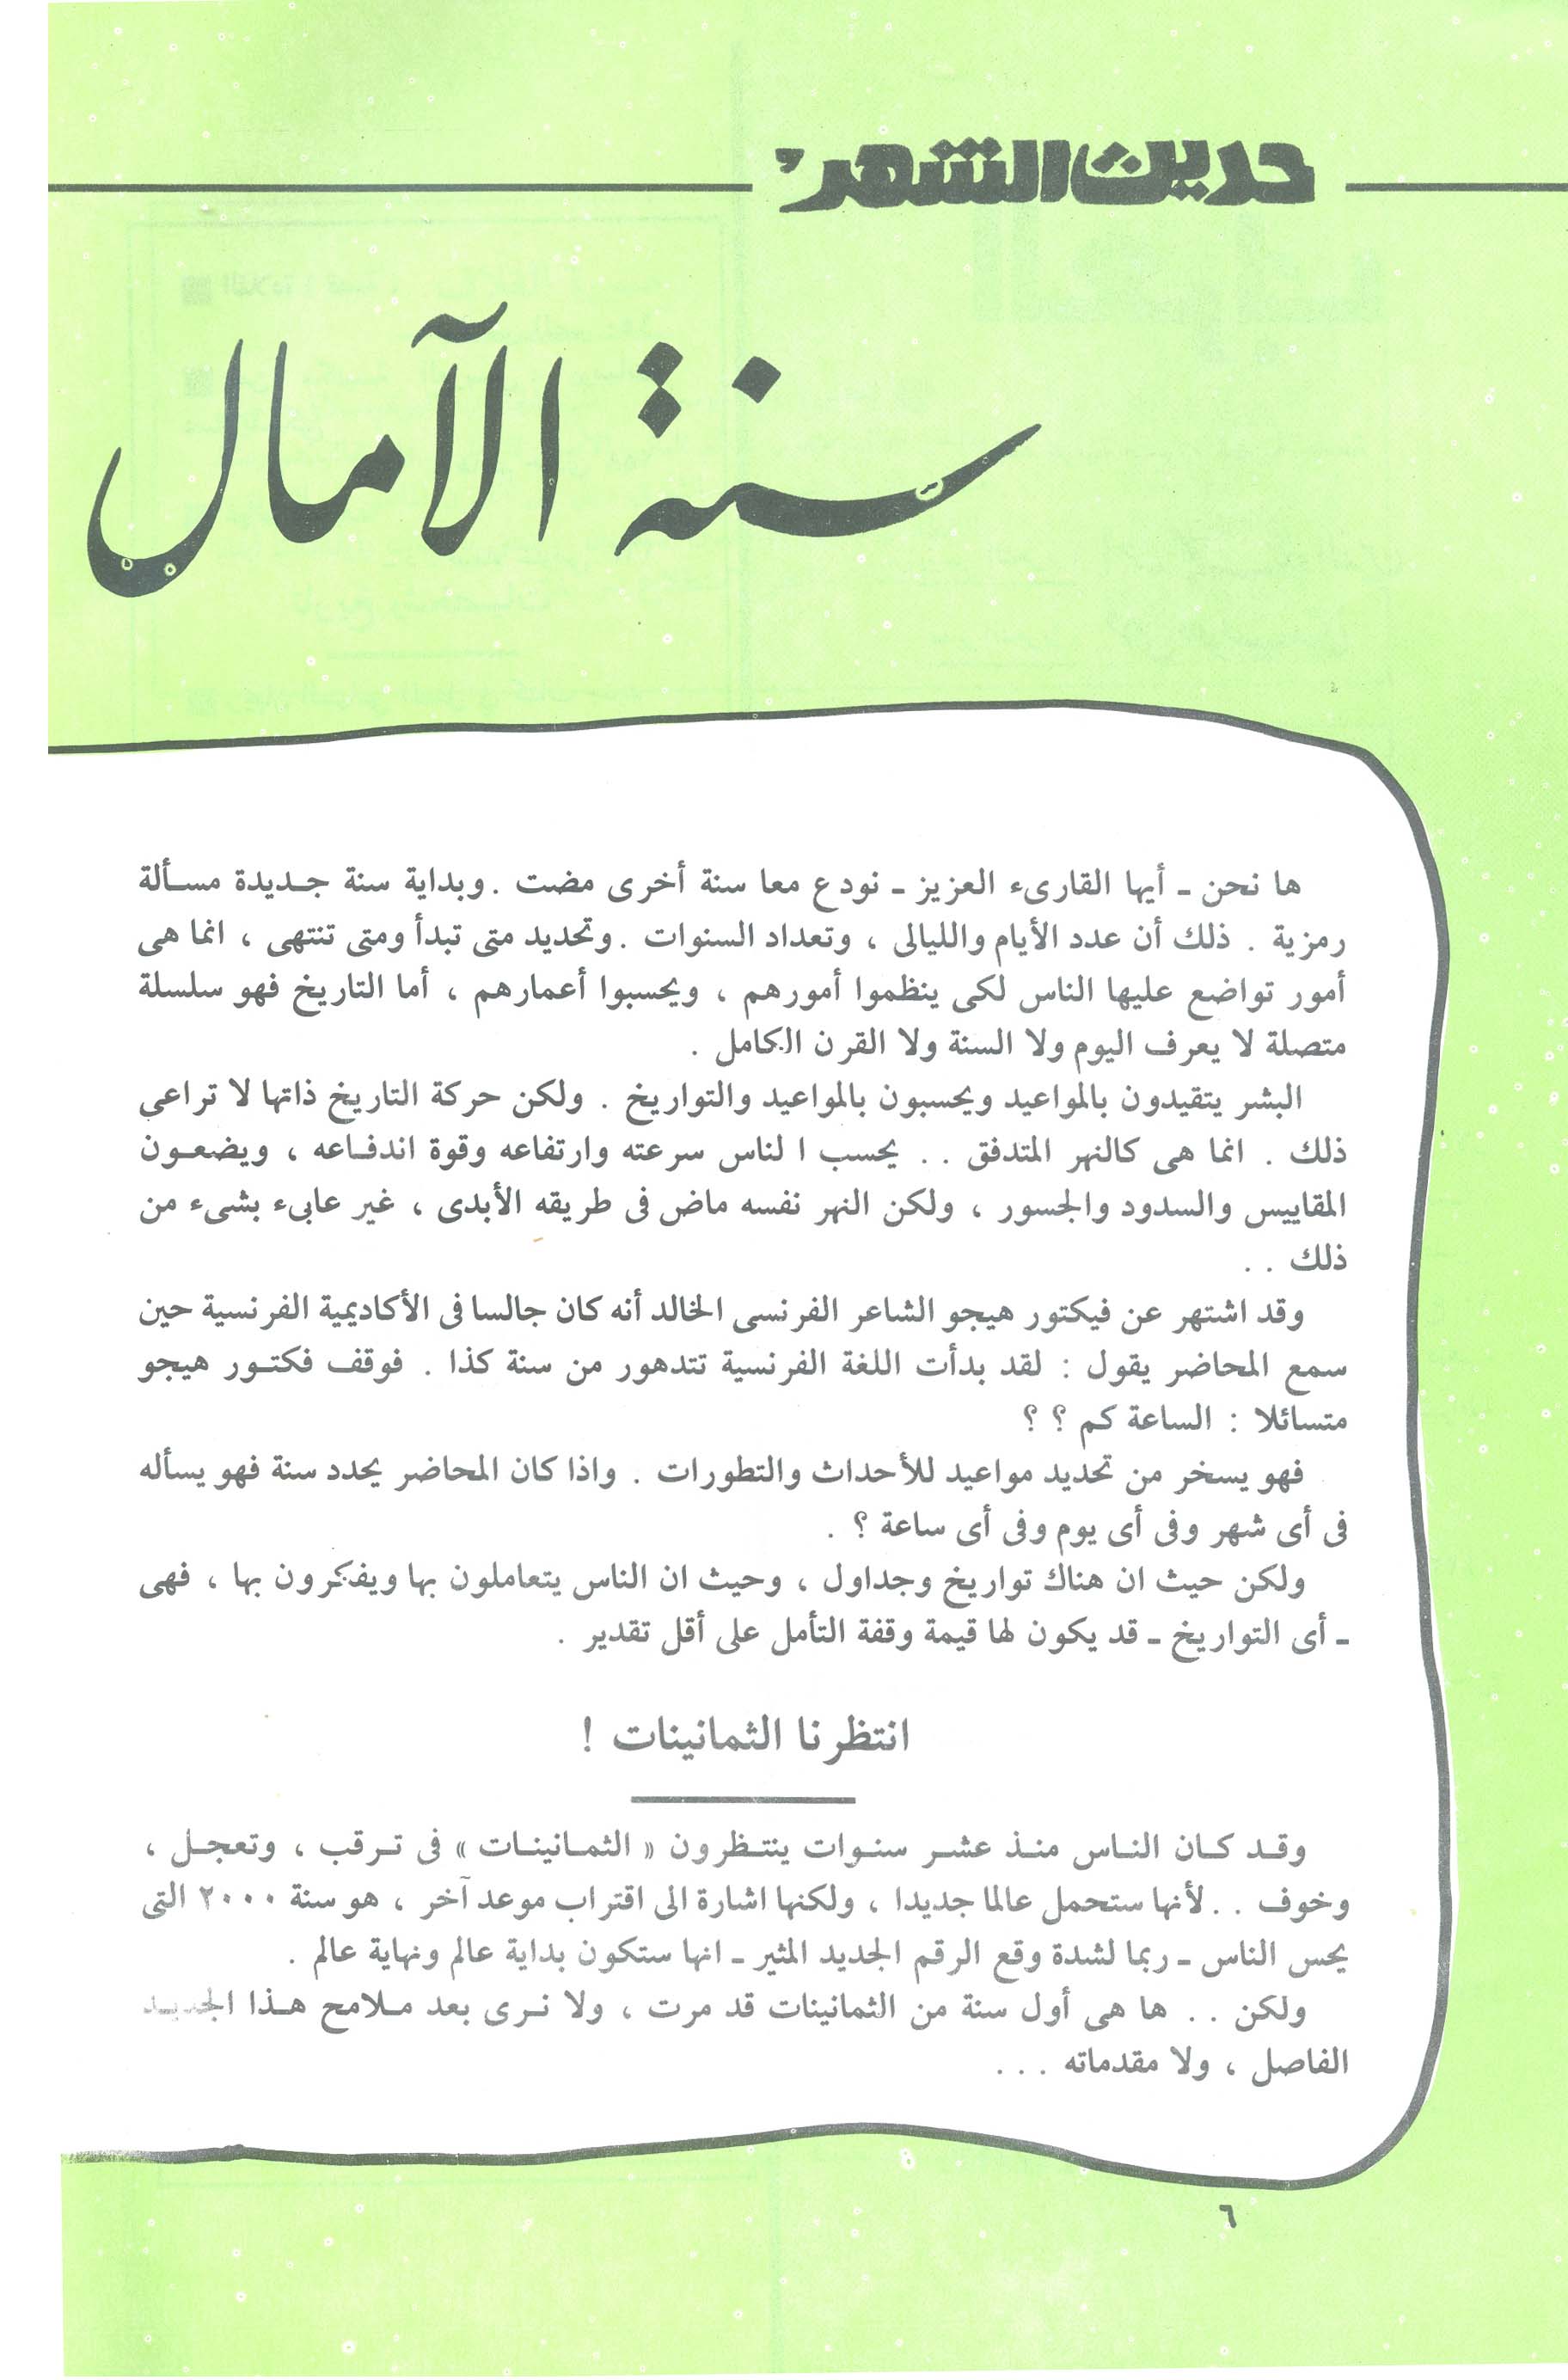 حديث الشهر
سنة الآمال
ها نحن ـ أيها القارىء العزيز ـ نودع معا سنة أخرى مضت . وبداية سنة جديدة مسألة
رمزية . ذلك أن عدد الأيام والليالى ، وتعداد السنوات . وتحديد متى تبدأ ومتى تنتهى ، انما هى
أمور تواضع عليها الناس لكى ينظموا أمورهم ، ويحسبوا أعمارهم ، أما التاريخ فهو سلسلة
متصلة لا يعرف اليوم ولا السنة ولا القرن الكامل .
البشر يتقيدون بالمواعيد ويحسبون بالمواعيد والتواريخ . ولكن حركة التاريخ ذاتها لا تراعي
ذلك . انما هى كالنهر المتدفق . . يحسب ا لناس سرعته وارتفاعه وقوة اندفاعه ، ويضعون
المقاييس والسدود والجسور ، ولكن النهر نفسه ماض فى طريقه الأبدى ، غير عابىء بشىء من
ذلك . .
وقد اشتهر عن فيكتور هيجو الشاعر الفرنسى الخالد أنه كان جالسا فى الأكاديمية الفرنسية حين
سمع المحاضر يقول : لقد بدأت اللغة الفرنسية تتدهور من سنة كذا . فوقف فكتور هيجو
متسائلا : الساعة كم ؟ ؟
فهو يسخر من تحديد مواعيد للأحداث والتطورات . واذا كان المحاضر يحدد سنة فهو يسأله
فى أى شهر وفى أى يوم وفى أى ساعة ؟ .
ولكن حيث ان هناك تواريخ وجداول ، وحيث ان الناس يتعاملون بها ويفكرون بها ، فهى
ـ أى التواريخ ـ قد يكون لها قيمة وقفة التأمل على أقل تقدير .
انتظرنا الثمانينات !
وقد كان الناس منذ عشر سنوات ينتظرون « الثمانينات » فى ترقب ، وتعجل ،
وخوف . . لأنها ستحمل عالما جديدا ، ولكنها اشارة الى اقتراب موعد آخر ، هو سنة ٢٠٠٠ التى
يحس الناس ـ ربما لشدة وقع الرقم الجديد المثير ـ انها ستكون بداية عالم ونهاية عالم .
ولكن . . ها هى أول سنة من الثمانينات قد مرت ، ولا نرى بعد ملامح هذا الجديد
الفاصل ، ولا مقدماته . . .
٦